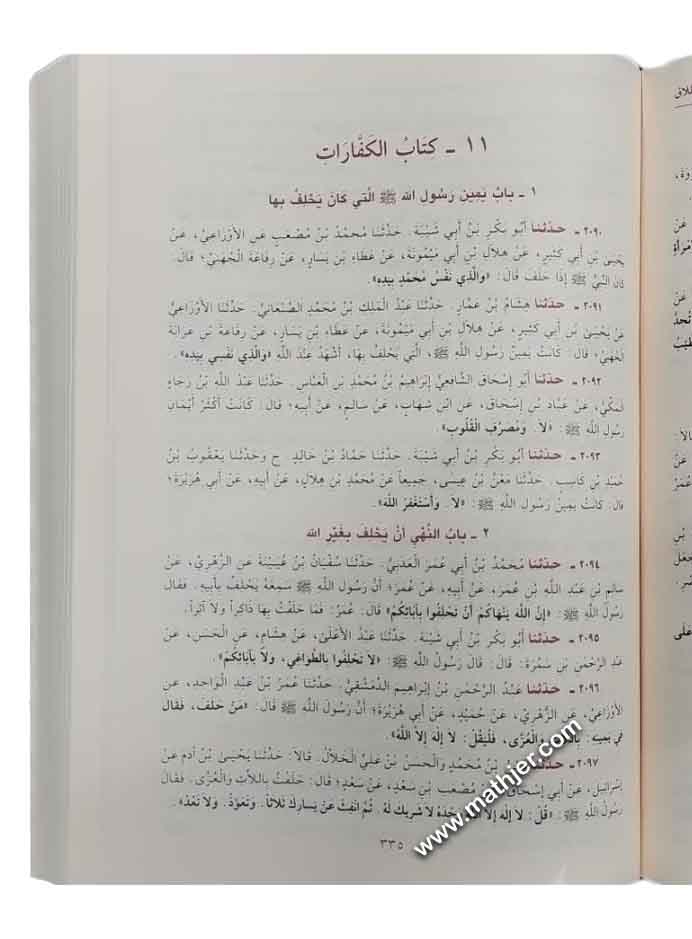 ١١ - كِتَابُ الكَفَّارَاتِ
١ - بابُ يَمِينِ رَسُولِ الله ﷺ الَّتِي كَانَ يَحْلِفُ بِها
٢٠٩٠ - حدّثنا أَبُو بَكْرِ بْنُ أَبِي شَيْبَةَ. حَدَّثَنَا مُحَمَّدُ بْنُ مُصْعَبٍ عَنِ الأَوْزَاعِيِّ، عَنْ
يَحْيَىٰ بْنِ أَبِي كَثِيرٍ، عَنْ هِلاَلِ بْنِ أَبِي مَيْمُونَةَ، عَنْ عَطَاءِ بْنِ يَسَارٍ، عَنْ رِفَاعَةَ الْجُهَنِيِّ؛ قَالَ:
كَانَ النَّبِيُّ ﷺ إِذَا حَلَفَ قَالَ: «وَالَّذِي نَفْسُ مُحَمَّدٍ بِيَدِهِ».
٢٠٩١ - حدّثنا هِشَامُ بْنُ عَمَّارٍ. حَدَّثَنَا عَبْدُ الْمَلِكِ بْنُ مُحَمَّدٍ الصَّنْعَانِيُّ. حَدَّثَنَا الأَوْزَاعِيُّ
عَنْ يَحْيَىٰ بْنِ أَبِي كَثِيرٍ، عَنْ هِلاَلِ بْنِ أَبِي مَيْمُونَةَ، عَنْ عَطَاءِ بْنِ يَسَارٍ، عَنْ رِفَاعَةَ بْنِ عَرَابَةَ
الْجُهَنِيِّ؛ قَالَ: كَانَتْ يَمِينُ رَسُولِ اللَّهِ ﷺ، الَّتِي يَحْلِفُ بِهَا، أَشْهَدُ عِنْدَ اللَّهِ «وَالَّذِي نَفْسِي بِيَدِهِ».
٢٠٩٢ - حدّثنا أَبُو إِسْحَاقَ الشَّافِعِيُّ إِبْرَاهِيمُ بْنُ مُحَمَّدِ بْنِ الْعَبَّاسِ. حَدَّثَنَا عَبْدُ اللَّهِ بْنُ رَجَاءٍ
الْمَكِّيُّ، عَنْ عَبَّادِ بْنِ إِسْحَاقَ، عَنِ ابْنِ شِهَابٍ، عَنْ سَالِمٍ، عَنْ أَبِيهِ؛ قَالَ: كَانَتْ أَكْثَرُ أَيْمَانِ
رَسُولِ اللَّهِ ﷺ: «لاَ. وَمُصَرِّفِ الْقُلُوبِ».
٢٠٩٣ - حدّثنا أَبُو بَكْرِ بْنُ أَبِي شَيْبَةَ. حَدَّثَنَا حَمَّادُ بْنُ خَالِدٍ. ح وَحَدَّثَنَا يَعْقُوبُ بْنُ
حُمَيْدِ بْنِ كَاسِبٍ. حَدَّثَنَا مَعْنُ بْنُ عِيسَىٰ، جَمِيعاً عَنْ مُحَمَّدِ بْنِ هِلاَلٍ، عَنْ أَبِيهِ، عَنْ أَبِي هُرَيْرَةَ؛
قَالَ: كَانَتْ يَمِينُ رَسُولِ اللَّهِ ﷺ: «لاَ. وَأَسْتَغْفِرُ اللَّهَ».
٢ - بابُ النَّهْيِ أَنْ يَحْلِفَ بِغَيْرِ الله
٢٠٩٤ - حدّثنا مُحَمَّدُ بْنُ أَبِي عُمَرَ الْعَدَنِيُّ. حَدَّثَنَا سُفْيَانُ بْنُ عُيَيْنَةَ عَنِ الزُّهْرِيِّ، عَنْ
سَالِمِ بْنِ عَبْدِ اللَّهِ بْنِ عُمَرَ، عَنْ أَبِيهِ، عَنْ عُمَرَ؛ أَنَّ رَسُولَ اللَّهِ ﷺ سَمِعَهُ يَحْلِفُ بِأَبِيهِ. فَقَالَ
رَسُولُ اللَّهِ ﷺ: «إِنَّ اللَّهَ يَنْهَاكُمْ أَنْ تَحْلِفُوا بِآبَائِكُمْ» قَالَ: عُمَرُ: فَمَا حَلَفْتُ بِهَا ذَاكِراً وَلاَ آثِراً.
٢٠٩٥ - حدّثنا أَبُو بَكْرِ بْنُ أَبِي شَيْبَةَ. حَدَّثَنَا عَبْدُ الأَعْلَىٰ، عَنْ هِشَامٍ، عَنِ الْحَسَنِ، عَنْ
عَبْدِ الرَّحْمٰنِ بْنِ سَمُرَةَ: قَالَ: قَالَ رَسُولُ اللَّهِ ﷺ: «لاَ تَحْلِفُوا بِالطَّوَاغِي، وَلاَ بِآبَائِكُمْ».
٢٠٩٦ - حدّثنا عَبْدُ الرَّحْمٰنِ بْنُ إِبْرَاهِيمَ الدِّمَشْقِيُّ. حَدَّثَنَا عُمَرُ بْنُ عَبْدِ الْوَاحِدِ، عَنِ
الأَوْزَاعِيِّ، عَنِ الزُّهْرِيِّ، عَنْ حُمَيْدٍ، عَنْ أَبِي هُرَيْرَةَ؛ أَنَّ رَسُولَ اللَّهِ ﷺ قَالَ: «مَنْ حَلَفَ، فَقَالَ
فِي يَمِينِهِ: بِاللاَّتِ وَالْعُزَّىٰ، فَلْيَقُلْ: لاَ إِلٰهَ إِلاَّ اللَّهُ».
٢٠٩٧ - حدّثنا بْنُ مُحَمَّدٍ وَالْحَسَنُ بْنُ عَلِيٍّ الْخَلاَّلُ. قَالاَ: حَدَّثَنَا يَحْيَىٰ بْنُ آدَمَ عَنْ
إِسْرَائِيلَ، عَنْ أَبِي إِسْحَاقَ، مُصْعَبِ بْنِ سَعْدٍ، عَنْ سَعْدٍ؛ قَالَ: حَلَفْتُ بِاللاَّتِ وَالْعُزَّىٰ. فَقَالَ
رَسُولُ اللَّهِ ﷺ: «قُلْ: لاَ إِلٰهَ إِلاَّ اللَّهُ وَحْدَهُ لاَ شَرِيكَ لَهُ. ثُمَّ انْفِثْ عَنْ يَسَارِكَ ثَلاَثاً. وَتَعَوَّذْ. وَلاَ تَعُدْ».
٣٣٥
www.mathjer.com